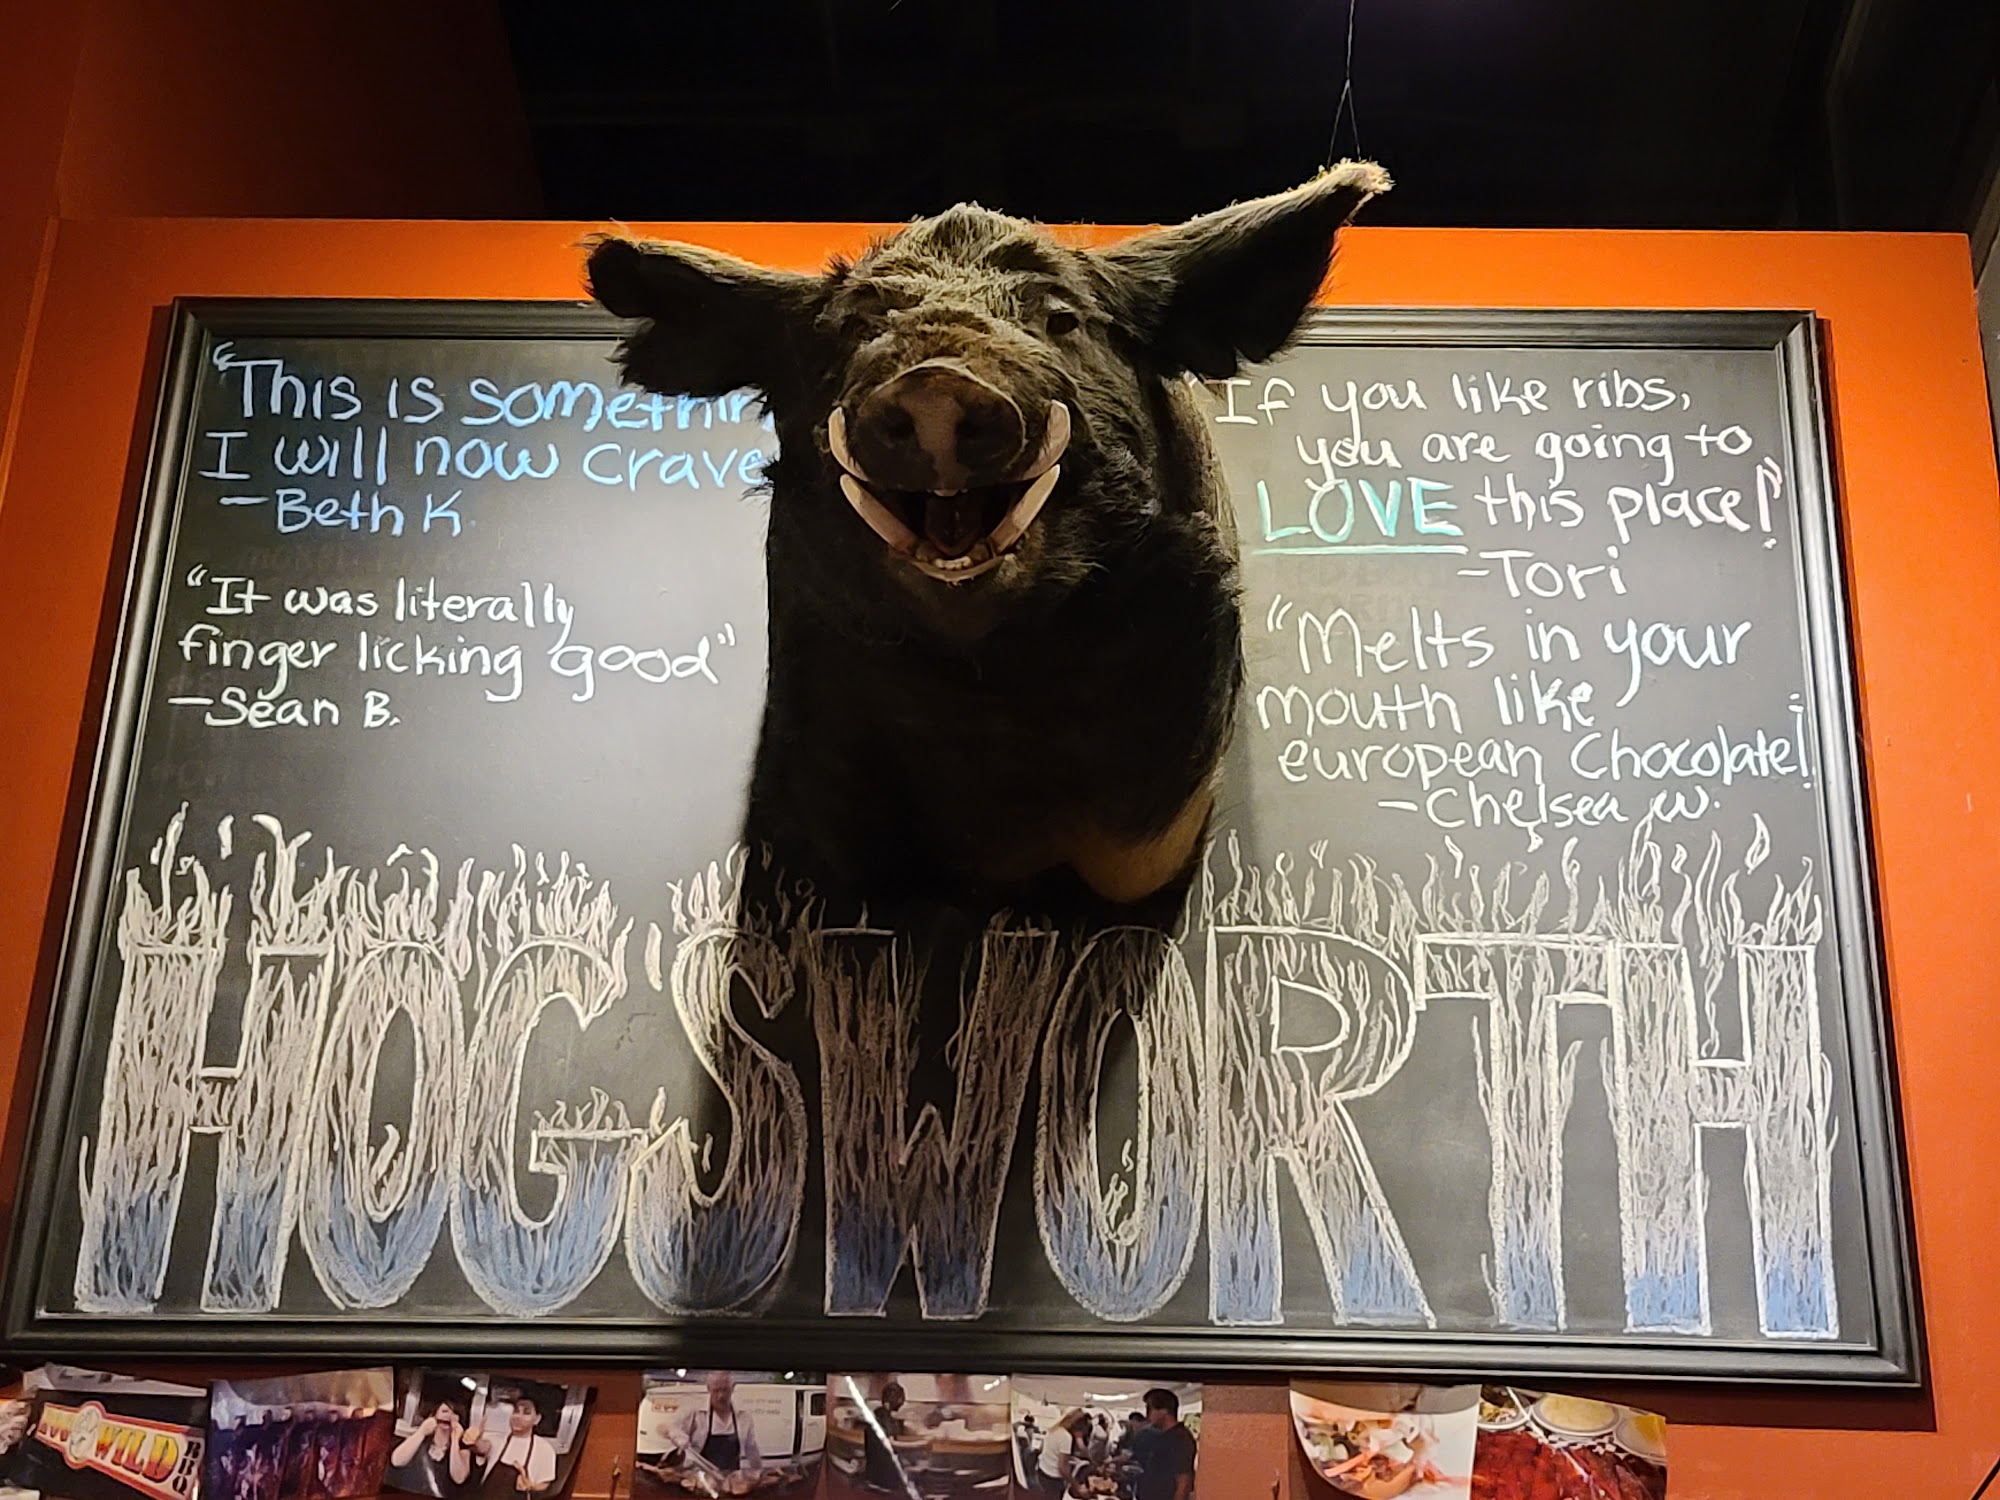 "This is somethin
I will now crave
-Beth K.
"It was literally
finger licking good"
-Sean B.
"If you like ribs,
you are going to
LOVE this place!"
-Tori
"Melts in your
mouth like
european Chocolate!
-Chelsea W.
HOG'SWORTH
WILD
BBQ